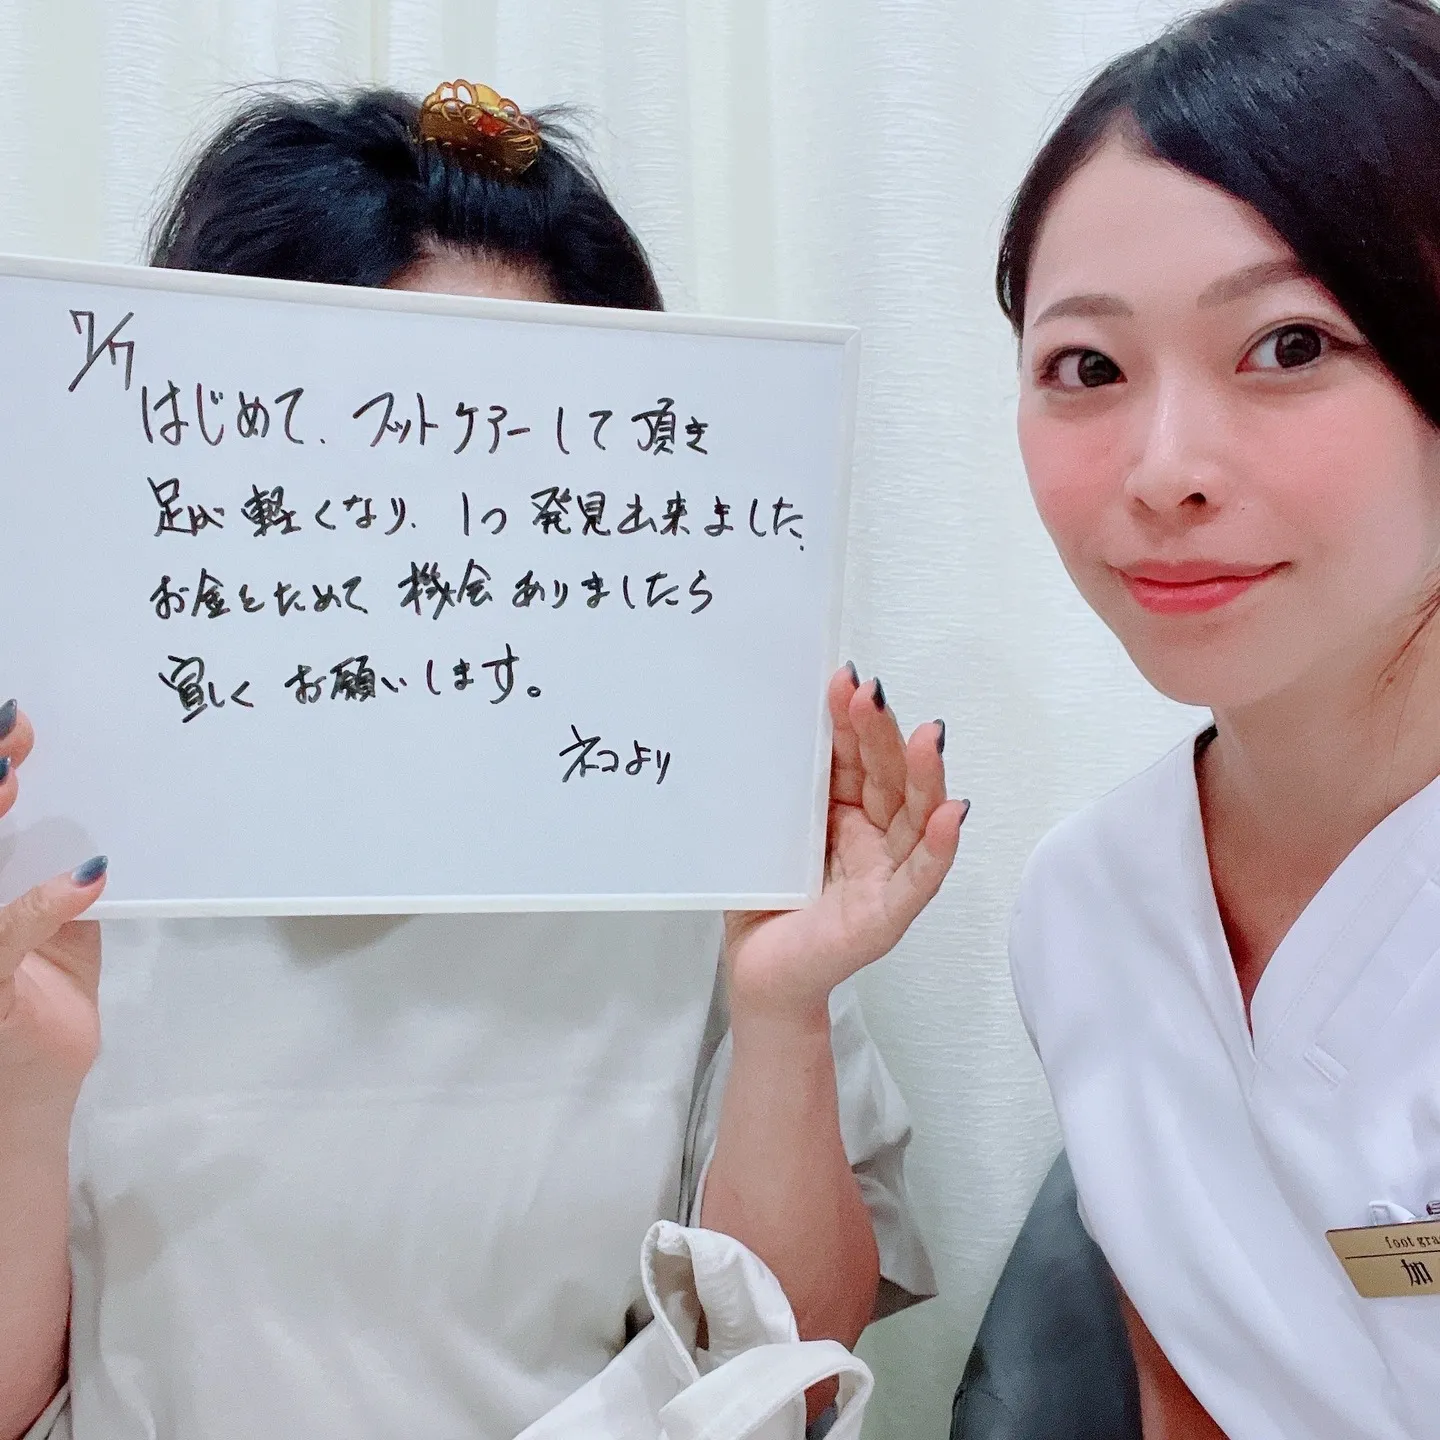 7/7
はじめて、フットケアーして頂き
足が軽くなり、1つ発見出来ました。
お金をためて機会ありましたら
宜しくお願いします。
ネコより
foot gra
加